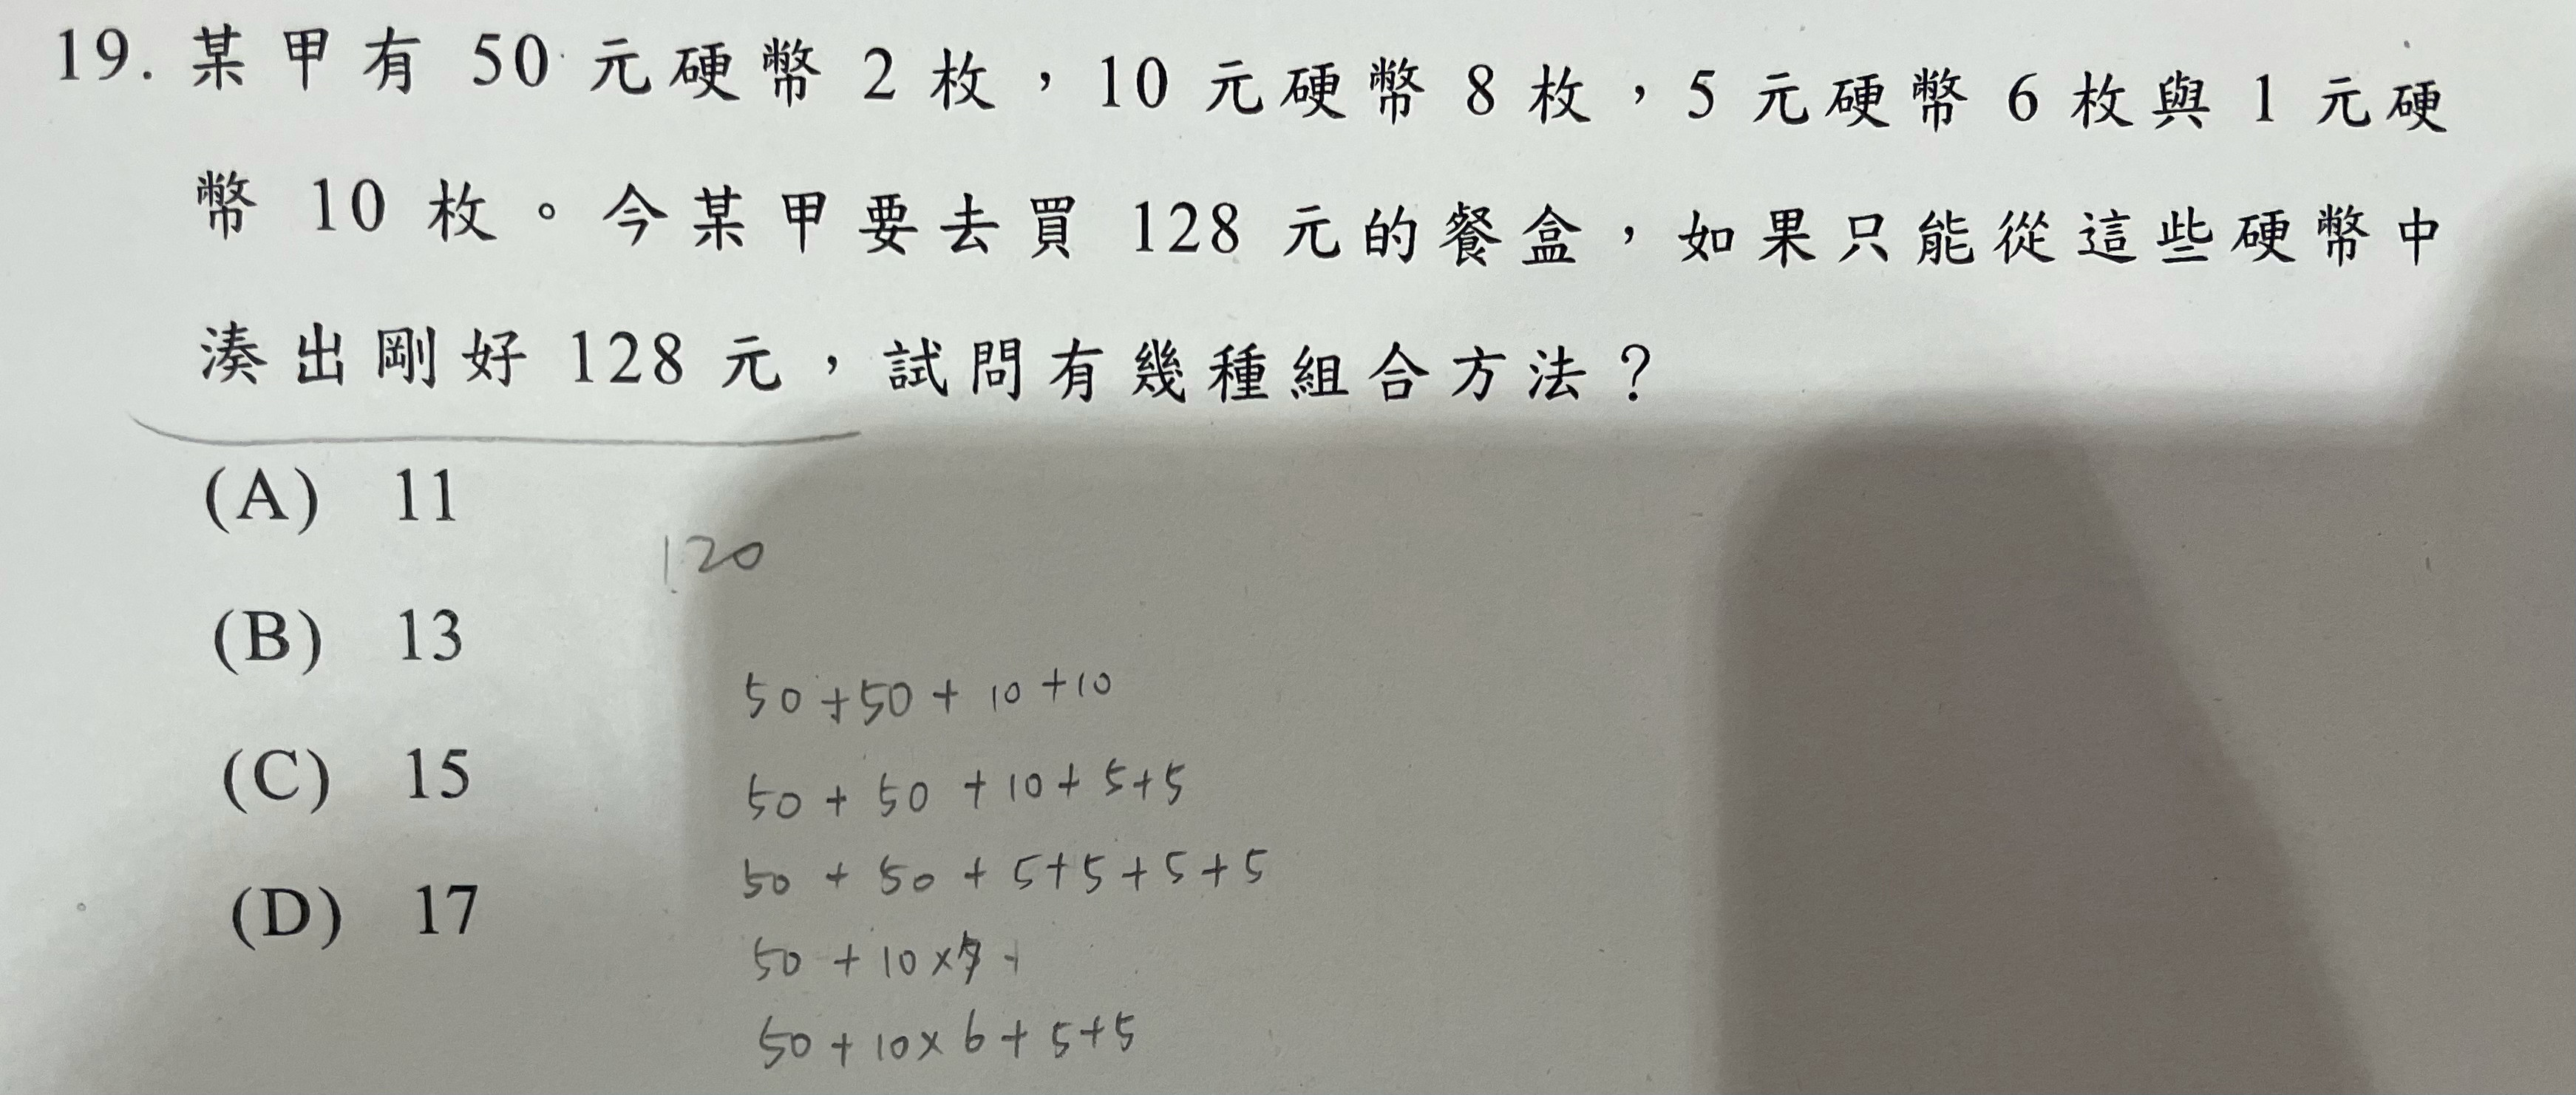 19. 某甲有 50 元硬幣 2 枚，10 元硬幣 8 枚，5 元硬幣 6 枚與 1 元硬
幣 10 枚。今某甲要去買 128 元的餐盒，如果只能從這些硬幣中
湊出剛好 128 元，試問有幾種組合方法？
(A) 11
120
(B) 13
50+50+10+10
(C) 15
50+50+10+5+5
50+50+5+5+5+5
(D) 17
50+10×
50+10×6+5+5